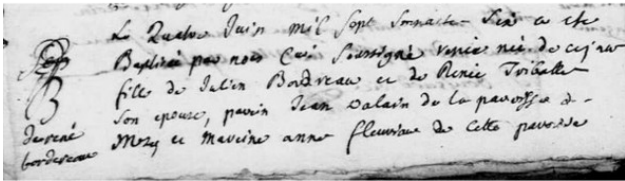 Le Quatre Juin mil Sept Soixante Six a été
Baptisée par nous Curé Soussigné renée née de ce jour
fille de Julien Bordereau et de Renée Triballe
Son epouse, parain Jean Valain de la paroisse de
Mozé et maraine anne fleuriau de cette paroisse
B
de rené
bordereau